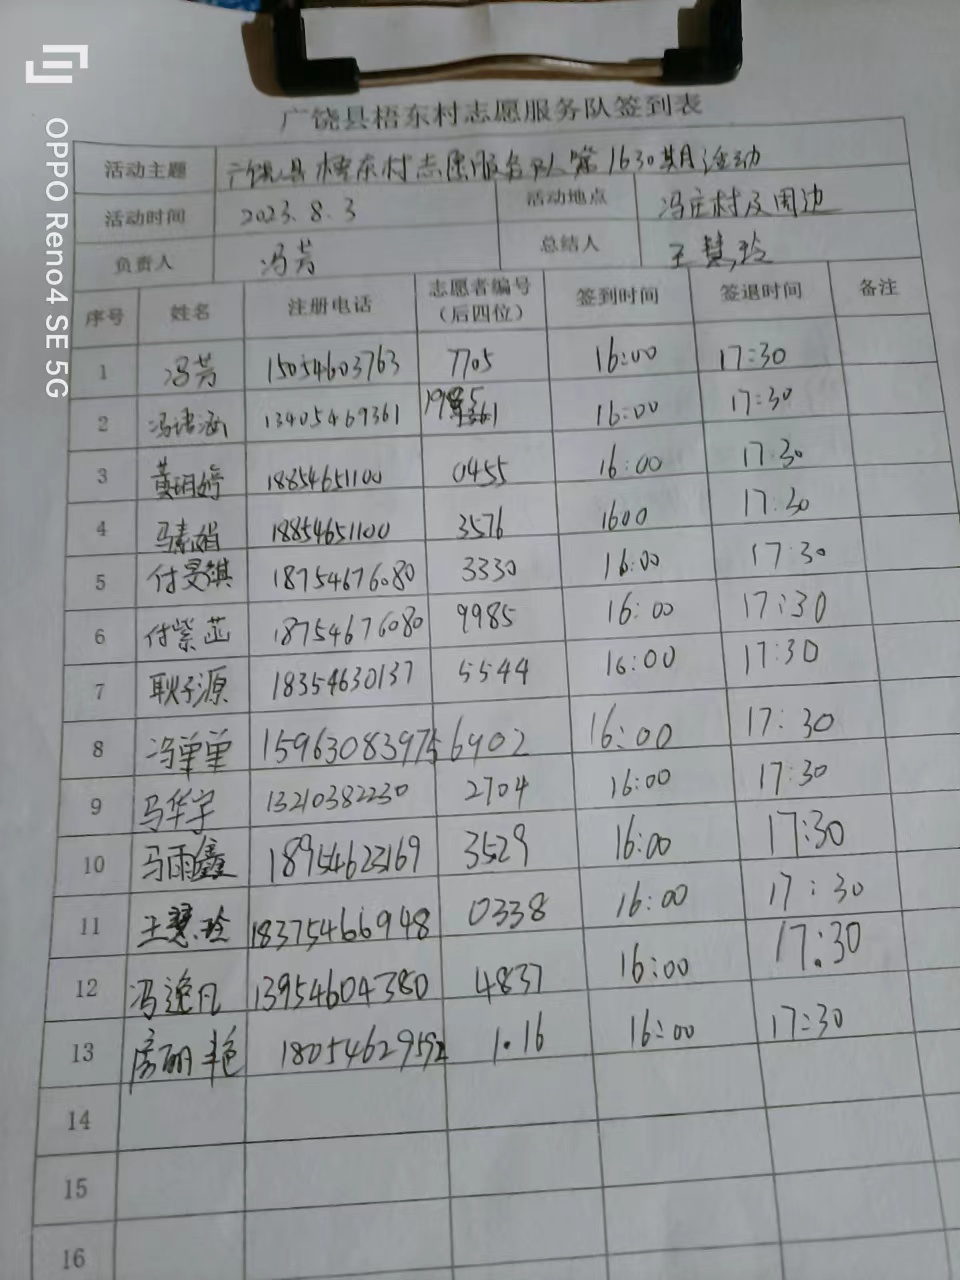 OPPO Reno4 SE 5G
广饶县梧东村志愿服务队签到表
活动主题 广饶县梧东村志愿服务队第1630期活动
活动时间 2023.8.3 活动地点 冯庄村及周边
负责人 冯芳 总结人 王慧玲
序号 姓名 注册电话 志愿者编号（后四位） 签到时间 签退时间 备注
1 冯芳 15054603763 7705 16:00 17:30
2 冯 涵 13405469361 1985 16:00 17:30
3 黄明婷 18854651100 0455 16:00 17:30
4 马素娟 18854651100 3576 1600 17:30
5 付旻祺 18754676080 3330 16:00 17:30
6 付紫 18754676080 9985 16:00 17:30
7 耿子源 18354630137 5544 16:00 17:30
8 冯单单 15963083975 6902 16:00 17:30
9 马华宇 13210382230 2704 16:00 17:30
10 马雨鑫 18954623169 3529 16:00 17:30
11 王慧玲 18375466948 0338 16:00 17:30
12 冯逸凡 13954604380 4837 16:00 17:30
13 房丽艳 18054629592 1.16 16:00 17:30
14
15
16